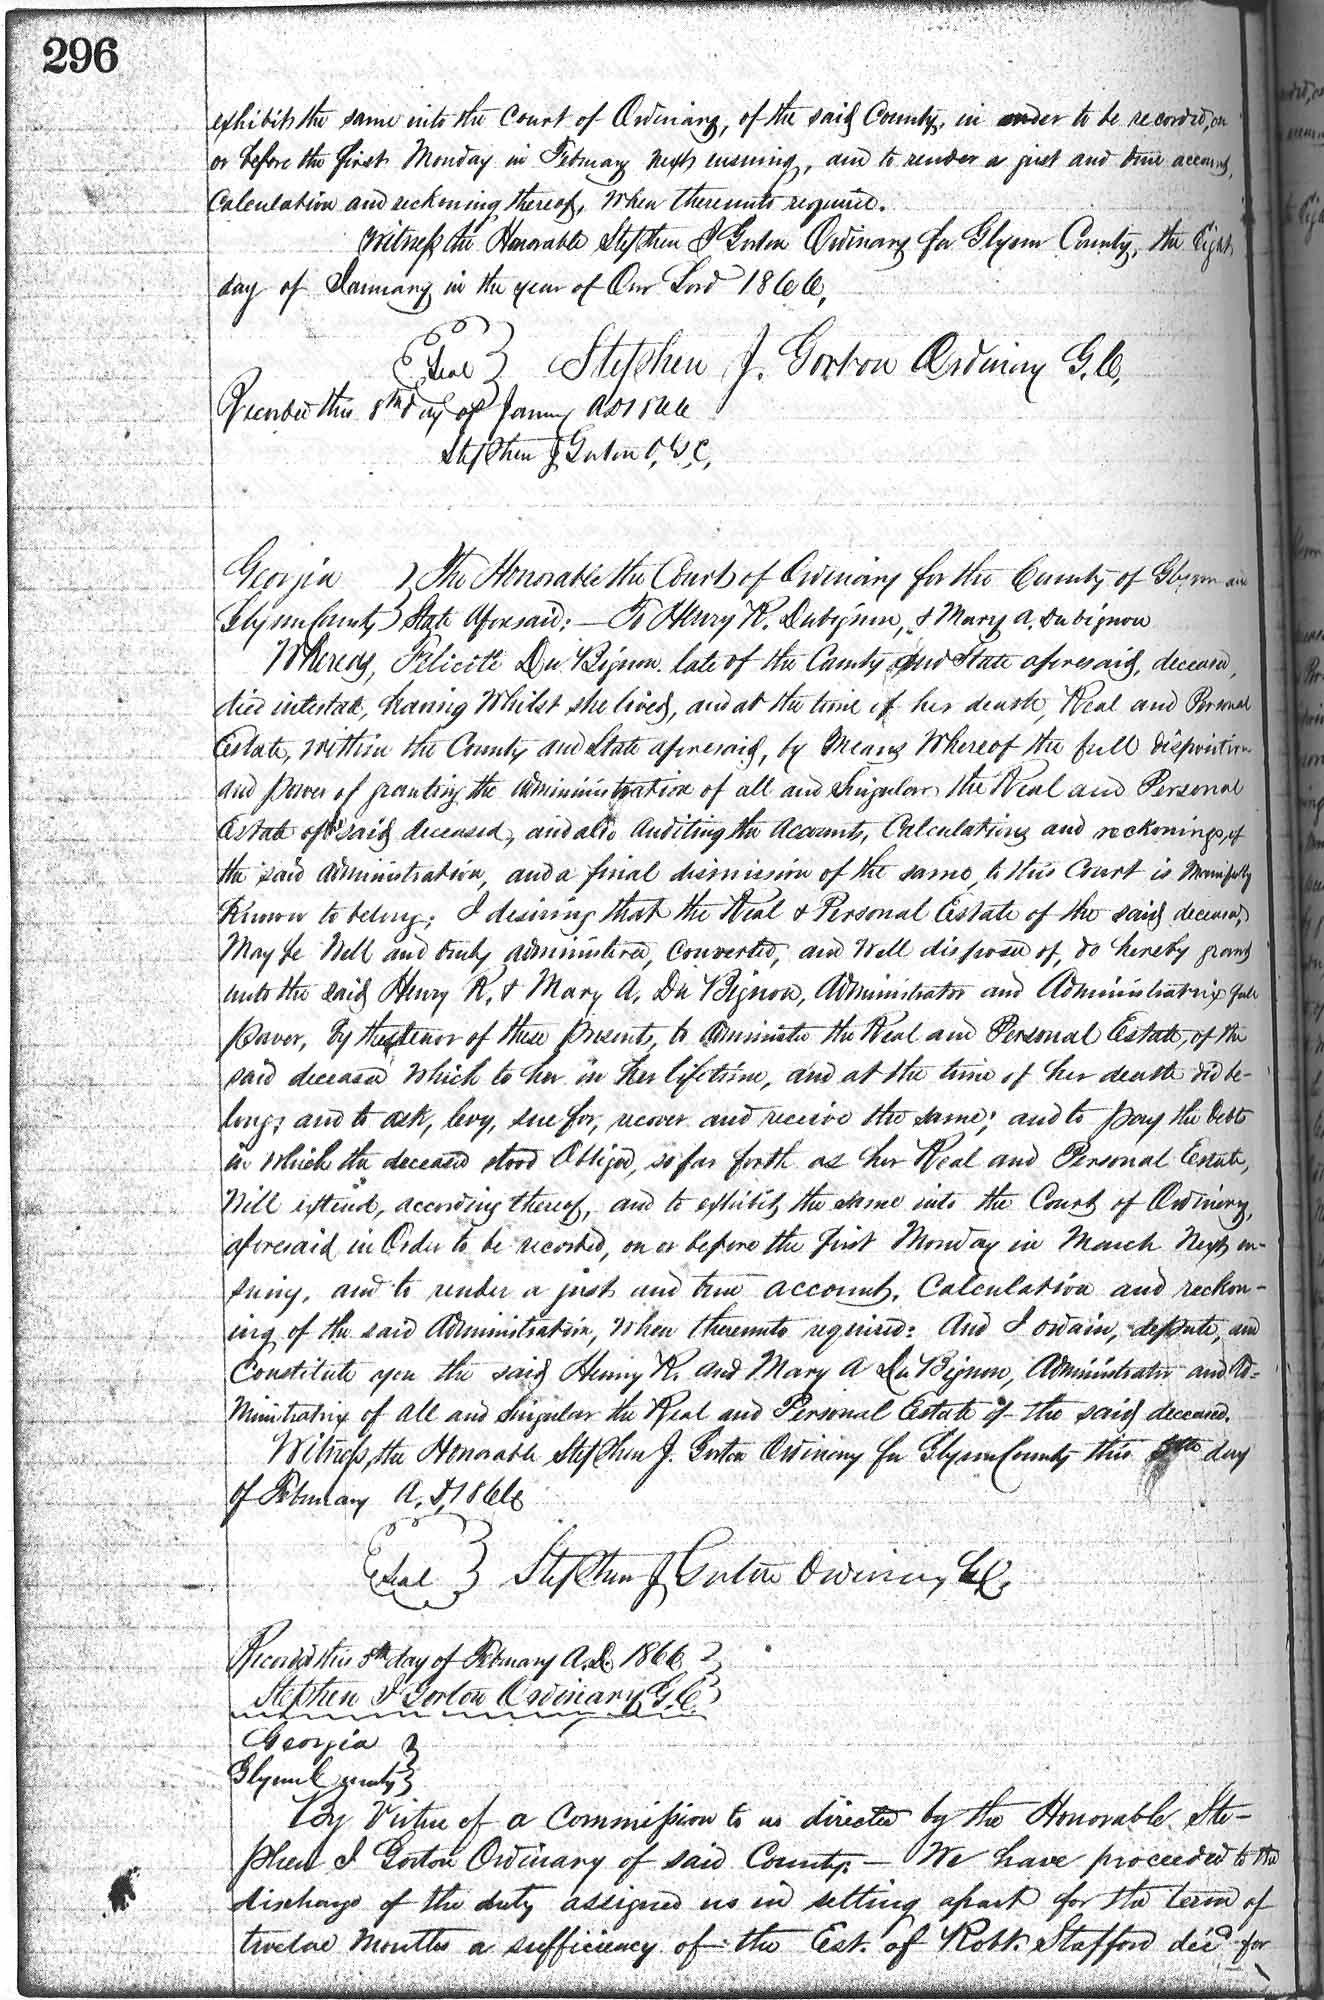 296
exhibit the same into the Court of Ordinary, of the said County, in order to be recorded, on
or before the first Monday in February next ensuing, and to render a just and true account,
Calculation and reckoning thereof, when thereunto required.
Witness the Honorable Stephen J Gorton Ordinary for Glynn County, the Eighth
day of January in the year of Our Lord 1866,
Seal Stephen J. Gorton Ordinary G.C.
Recorded this 8th day of January AD 1866
Stephen J Gorton O, G, C,
Georgia } The Honorable the Court of Ordinary for the County of Glynn and
Glynn County } State Aforesaid: — To Henry R. Dubignon, & Mary A. Dubignon
Whereas, Felicité Du Bignon late of the County and State aforesaid, deceased,
died intestate, having Whilst she lived, and at the time of her death, Real and Personal
Estate, within the County and State aforesaid, by Means Whereof the full disposition
and power of granting the administration of all and Singular the Real and Personal
Estate of said deceased, and also Auditing the Accounts, Calculations and reckonings, of
the said Administration, and a final dismission of the same, to this Court is Manifestly
Known to belong; I desiring that the Real & Personal Estate of the said deceased,
May be Well and truly administered, converted, and Well disposed of, do hereby grant
unto the said Henry R, & Mary A, Du Bignon, Administrator and Administratrix full
power, By the tenor of these presents, to administer the Real and Personal Estate, of the
said deceased Which to her in her lifetime, and at the time of her death did be-
long; and to ask, levy, sue for, recover and receive the same; and to pay the Debts
in Which the deceased stood Obliged, so far forth as her Real and Personal Estate,
Will extend, according thereof, and to exhibit the same into the Court of Ordinary,
aforesaid in Order to be recorded, on or before the first Monday in March Next en-
suing, and to render a just and true account, Calculation and reckon-
ing of the said Administration, When thereunto required: And I ordain, depute, and
Constitute you the said Henry R. and Mary A Du Bignon, Administrator and Ad=
Ministratrix of all and Singular the Real and Personal Estate of the said deceased.
Witness, the Honorable Stephen J. Gorton Ordinary for Glynn County this day
of February A.D. 1866
Seal Stephen J Gorton Ordinary G,C,
Recorded this 8th day of February A.D. 1866
Stephen J Gorton Ordinary G.C.
Georgia }
Glynn County }
By Virtue of a Commission to us directed by the Honorable Ste-
phen J Gorton Ordinary of said County. — We have proceeded to the
discharge of the duty assigned us in setting apart for the term of
twelve Months a sufficiency of the Est. of Robt. Stafford decd for